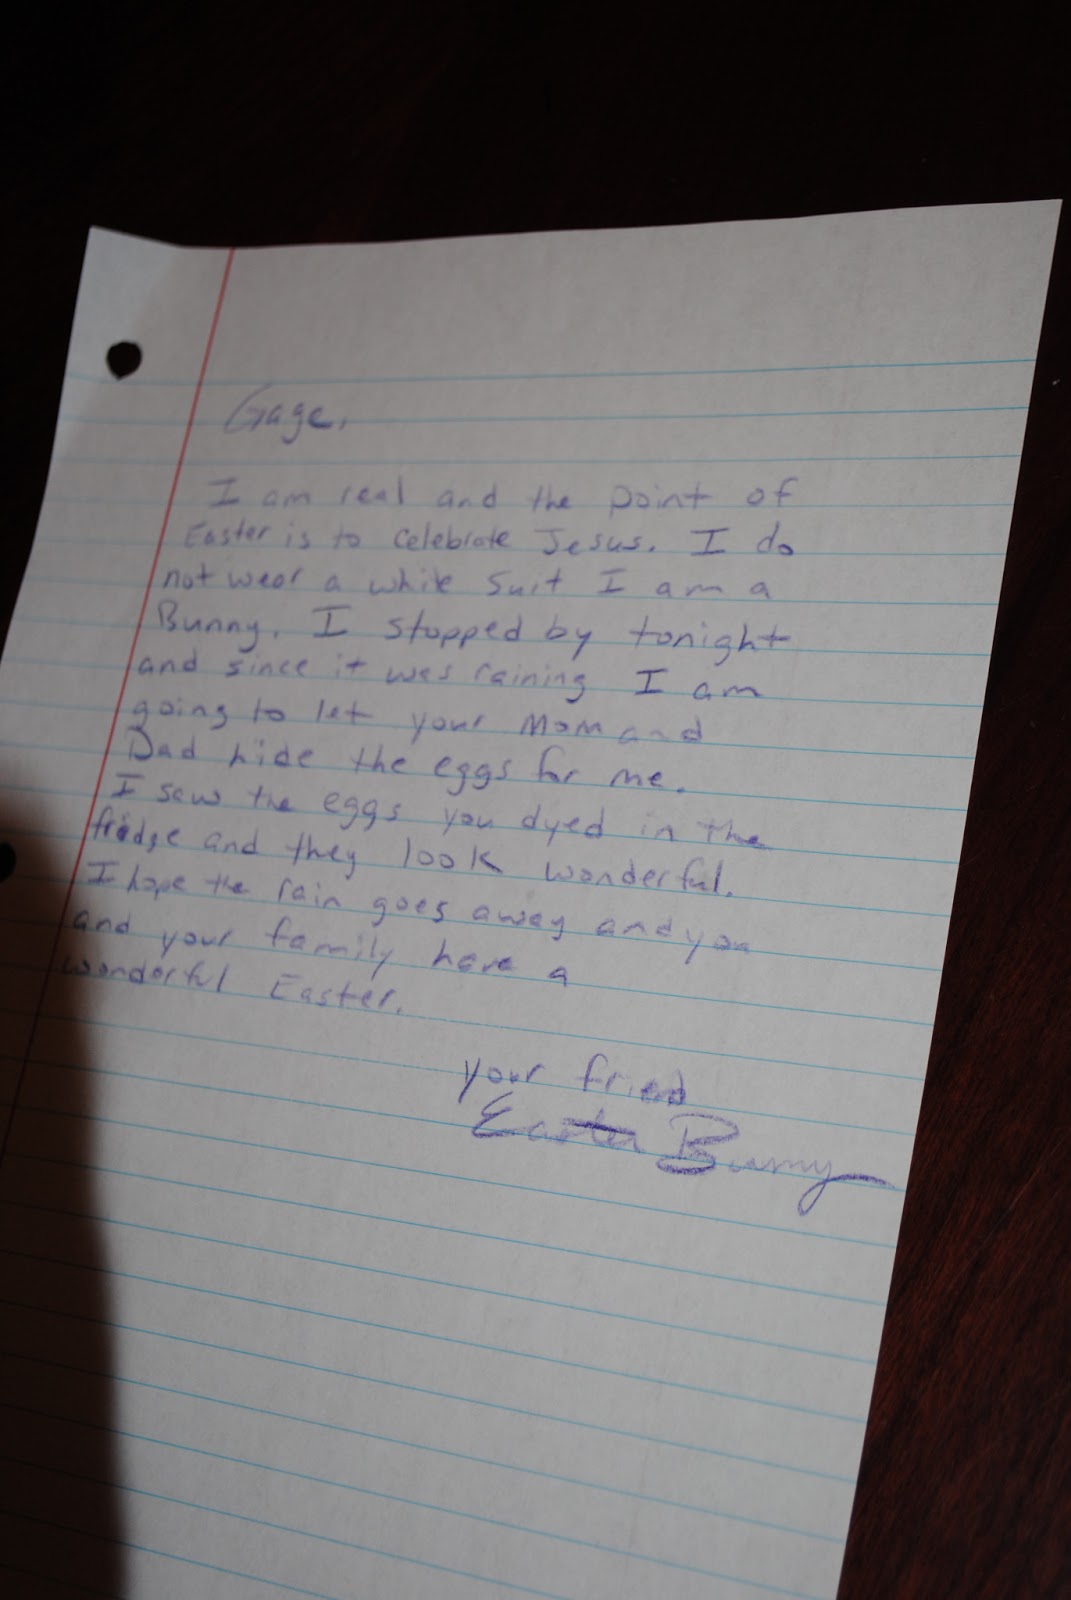 Gage,
I am real and the point of
Easter is to celebrate Jesus. I do
not wear a white suit I am a
Bunny. I stopped by tonight
and since it was raining I am
going to let your Mom and
Dad hide the eggs for me.
I saw the eggs you dyed in the
fridge and they look wonderful.
I hope the rain goes away and you
and your family have a
wonderful Easter.
your friend
Easter Bunny